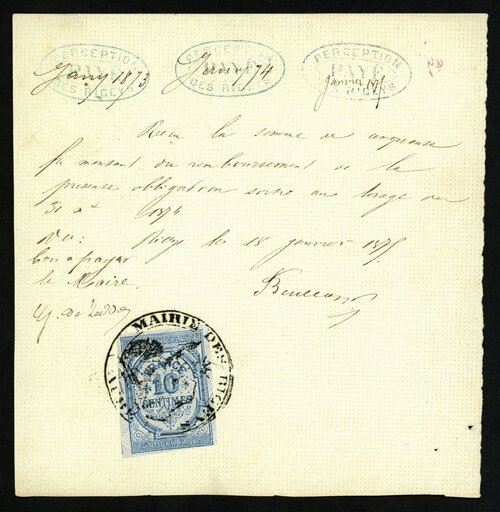 PERCEPTION
PAYÉ
DES RICEYS
Janv 1873
PERCEPTION
PAYÉ
DES RICEYS
Janv 74
PERCEPTION
PAYÉ
DES RICEYS
janvier 187
Reçu la somme de cinquante
fr montant du remboursement de la
présente obligation sortie au tirage du
31 1874
Vu: Riceys le 18 janvier 1875
bon à payer
le Maire
MAIRIE DES RICEYS
FRANCE
10
CENTIMES